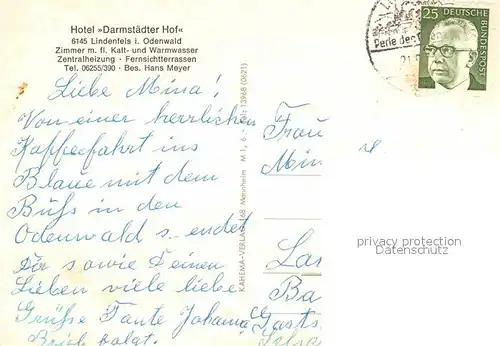 Hotel »Darmstädter Hof«
6145 Lindenfels i. Odenwald
Zimmer m. fl. Kalt- und Warmwasser
Zentralheizung · Fernsichtterrassen
Tel. 06255/390 · Bes. Hans Meyer
Liebe Mina!
Von einer herrlichen
Kaffeefahrt ins
Blaue mit dem
Büß in den
Odenwald sendet
Dir sowie Deinen
Lieben viele liebe
Grüße Tante Johanna
Brief folgt.
KAHEMA-VERLAG 68 Mannheim M 1, 6 · Tel: 13968 (0621)
Perle des
25
DEUTSCHE
BUNDESPOST
Frau
privacy protection
Datenschutz